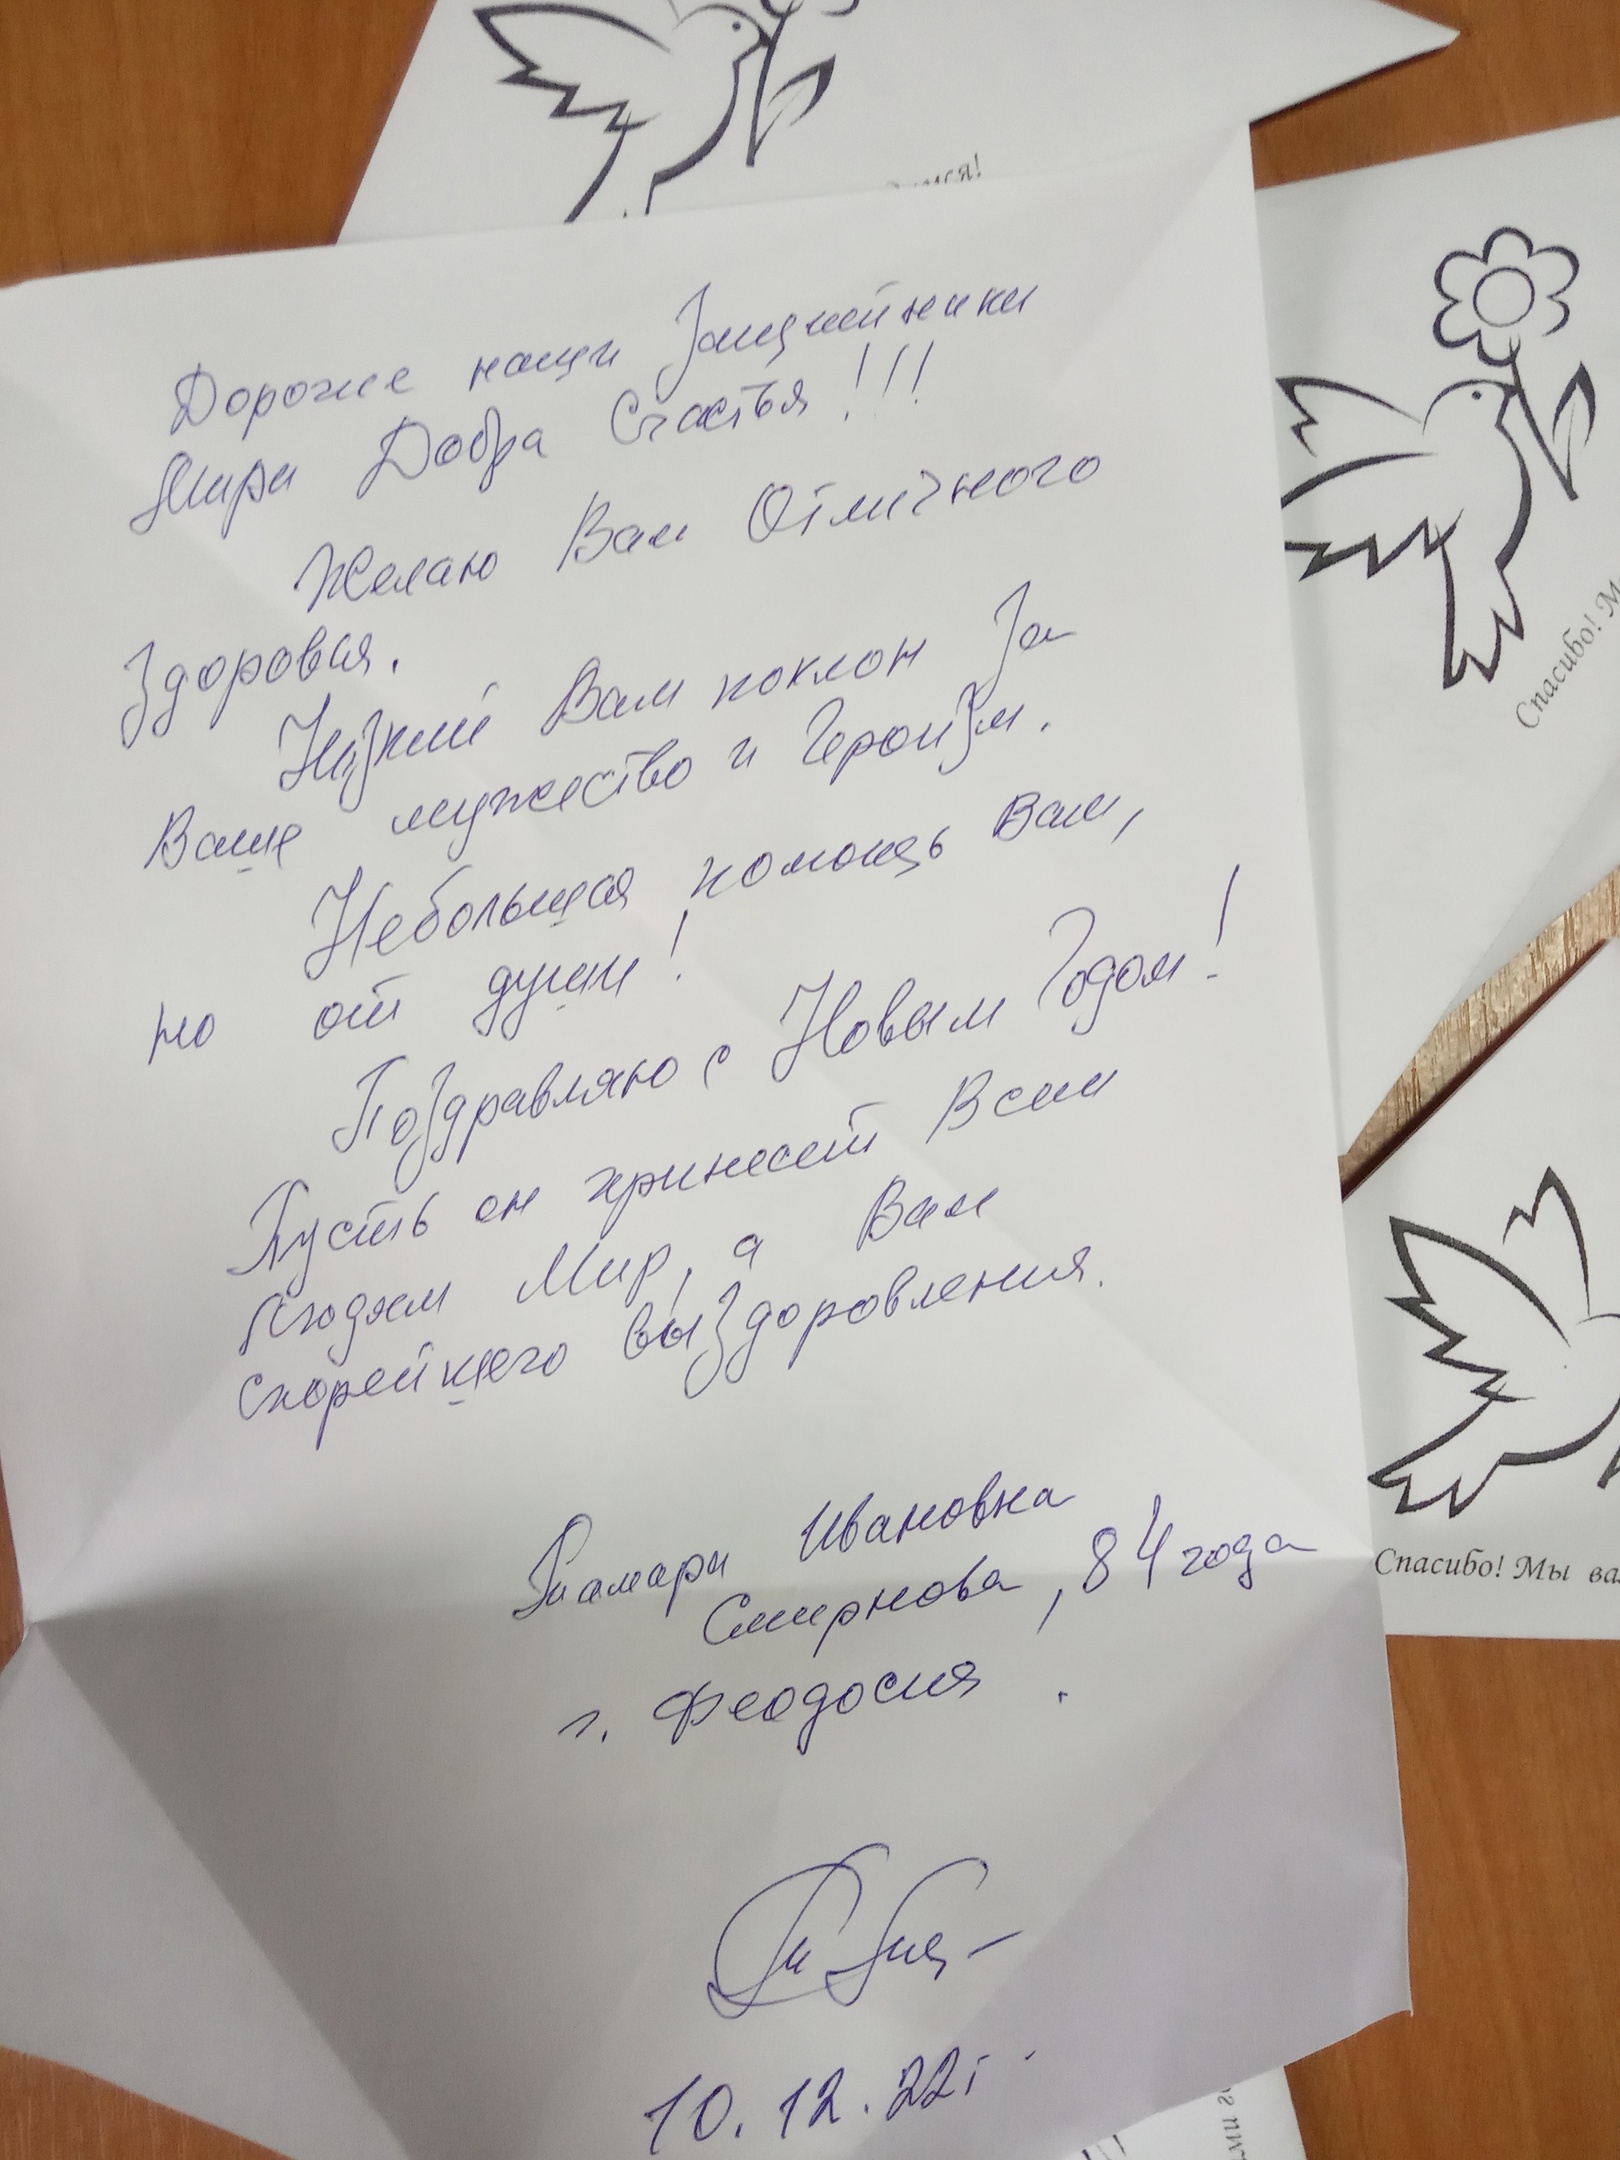 Дорожие наши Защитники
Мира Добра Счастья!!!
Желаю Вам Отличного
Здоровья.
Низкий Вам поклон за
Ваше мужество и Героизм.
Небольшая помощь Вам,
но от души!
Поздравляю с Новым Годом!
Пусть он принесёт Всем
Людям Мир, а Вам
скорейшего выздоровления.
Тамара Ивановна
Смирнова, 84 года
г. Феодосия.
10.12.22г.
Спасибо! М
Спасибо! Мы ва